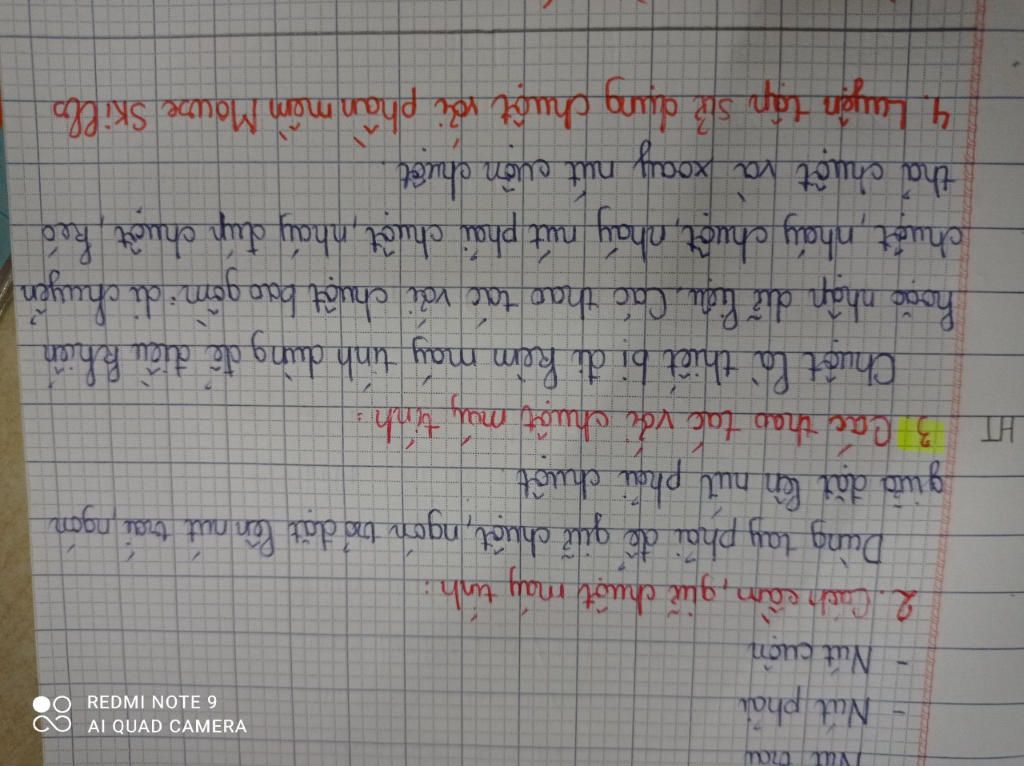 Nút trái
- Nút phải
- Nút cuộn
2. Cách cầm, giữ chuột máy tính:
Dùng tay phải để giữ chuột, ngón trỏ đặt lên nút trái, ngón
giữa đặt lên nút phải chuột
HT 3 Các thao tác với chuột máy tính:
Chuột là thiết bị đi kèm máy tính dùng để điều khiển
hoặc nhập dữ liệu. Các thao tác với chuột bao gồm: di chuyển
chuột, nháy chuột, nháy nút phải chuột, nháy đúp chuột, kéo
thả chuột và xoay nút cuộn chuột.
4. Luyện tập sử dụng chuột với phần mềm Mouse Skills
REDMI NOTE 9
AI QUAD CAMERA